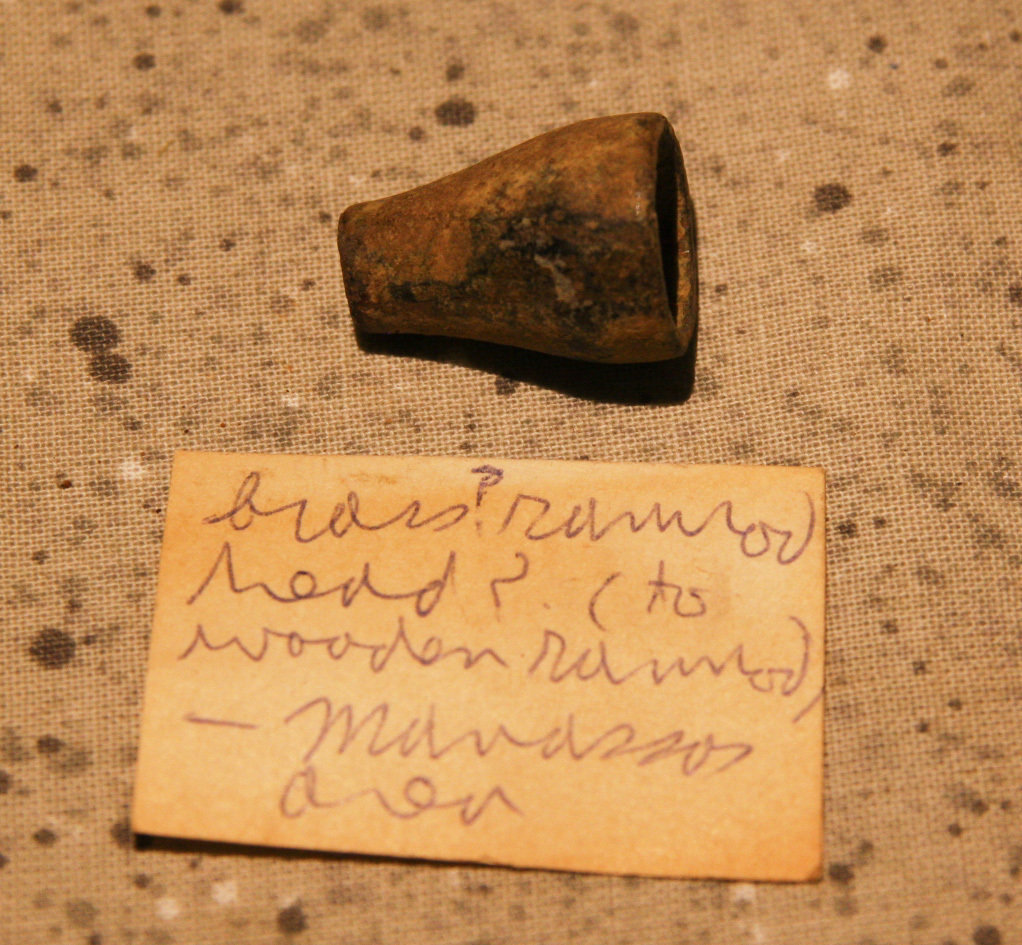 brass? ramrod
head?. (to
wooden ramrod)
— Manassas
area